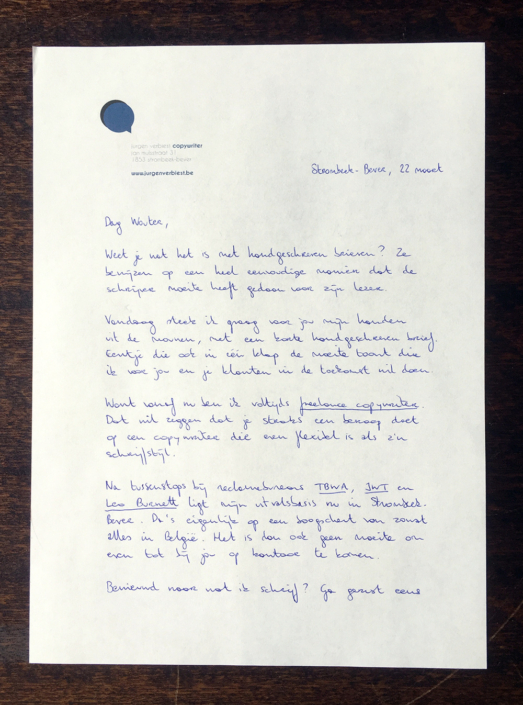 jurgen verbiest copywriter
1853 strombeek-bever
www.jurgenverbiest.be
Strombeek-Bever, 22 maart
Dag Wouter,
Weet je wat het is met handgeschreven brieven? Ze
bewijzen op een heel eenvoudige manier dat de
schrijver moeite heeft gedaan voor zijn lezer.
Vandaag steek ik graag voor jou mijn handen
uit de mouwen, met een korte handgeschreven brief.
Eentje die ook in één klap de moeite toont die
ik voor jou en je klanten in de toekomst wil doen.
Want vanaf nu ben ik voltijds freelance copywriter.
Dat wil zeggen dat je straks een beroep doet
op een copywriter die even flexibel is als z'n
schrijfstijl.
Na tussenstops bij reclamebureaus TBWA, JWT en
Leo Burnett ligt mijn uitvalsbasis nu in Strombeek-
Bever. Da's eigenlijk op een boogscheut van zowat
alles in België. Het is dan ook geen moeite om
even tot bij jou op kantoor te komen.
Benieuwd naar wat ik schrijf? Ga gerust eens